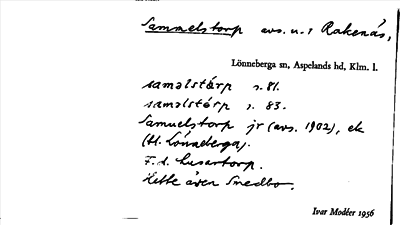 Sammelstorp avs. u. 1 Rakenäs,
Lönneberga sn, Aspelands hd, Klm. l.
samǝlstórp s. 81.
samǝlstórp s. 83.
Samuelstorp jr (avs. 1902), ek
(Hl. Lönneberga).
F. d. husartorp.
Hette även Smedbo.
Ivar Modéer 1956